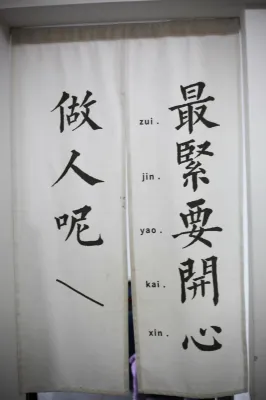 做人呢\
最緊要開心
zui .
jin .
yao .
kai .
xin .